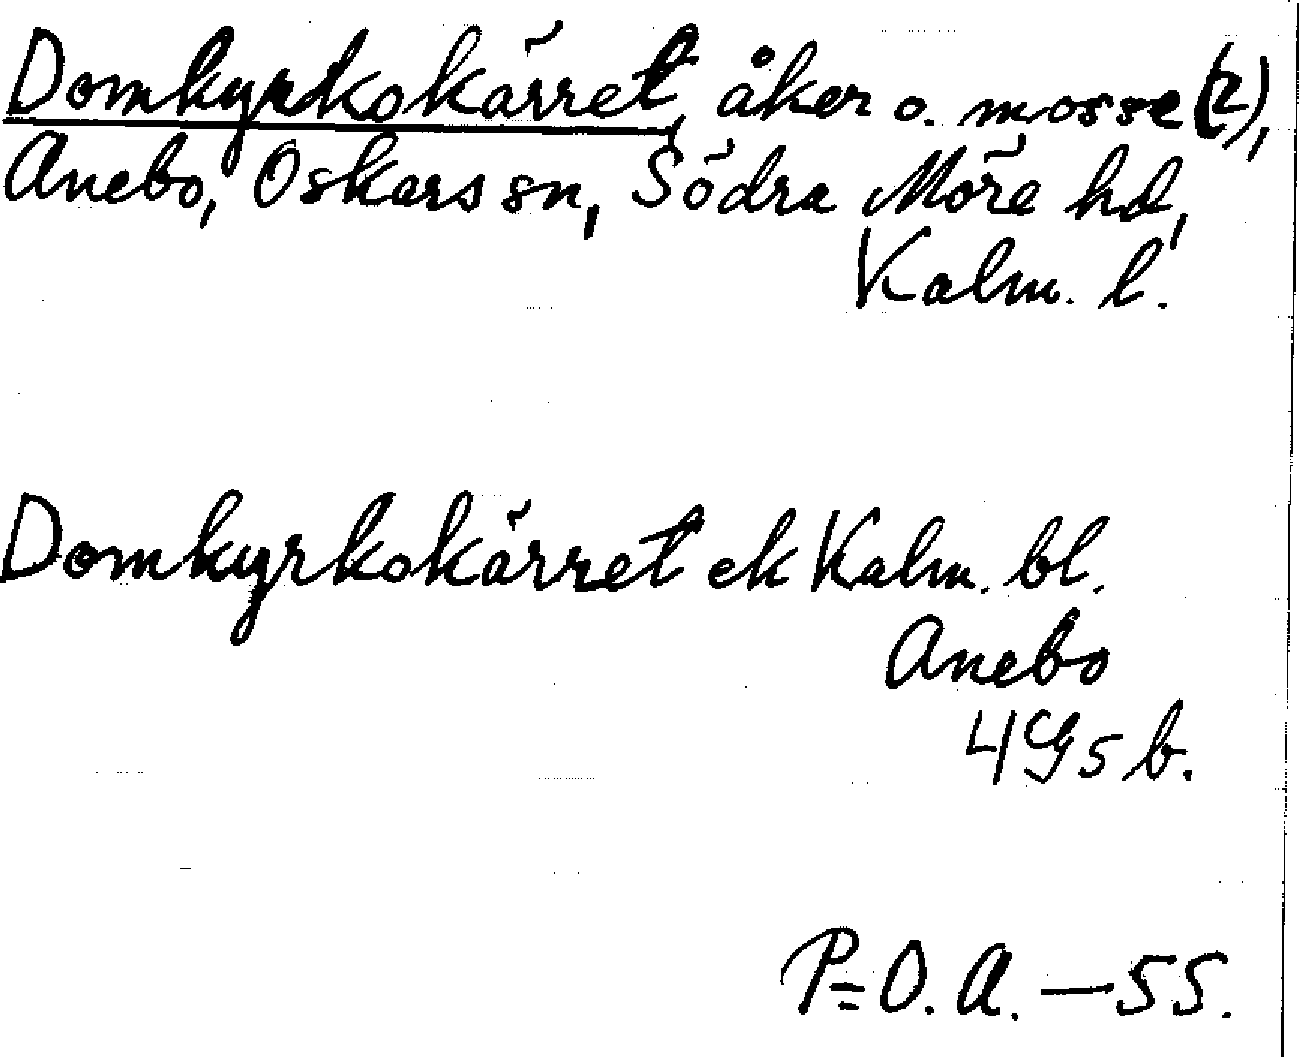 Domkyrkokärret, åker o. mosse (?),
Anebo, Oskars sn, Södra Möre hd,
Kalm. l.
Domkyrkokärret ek Kalm. bl.
Anebo
4G5b.
P=O.A.—55.